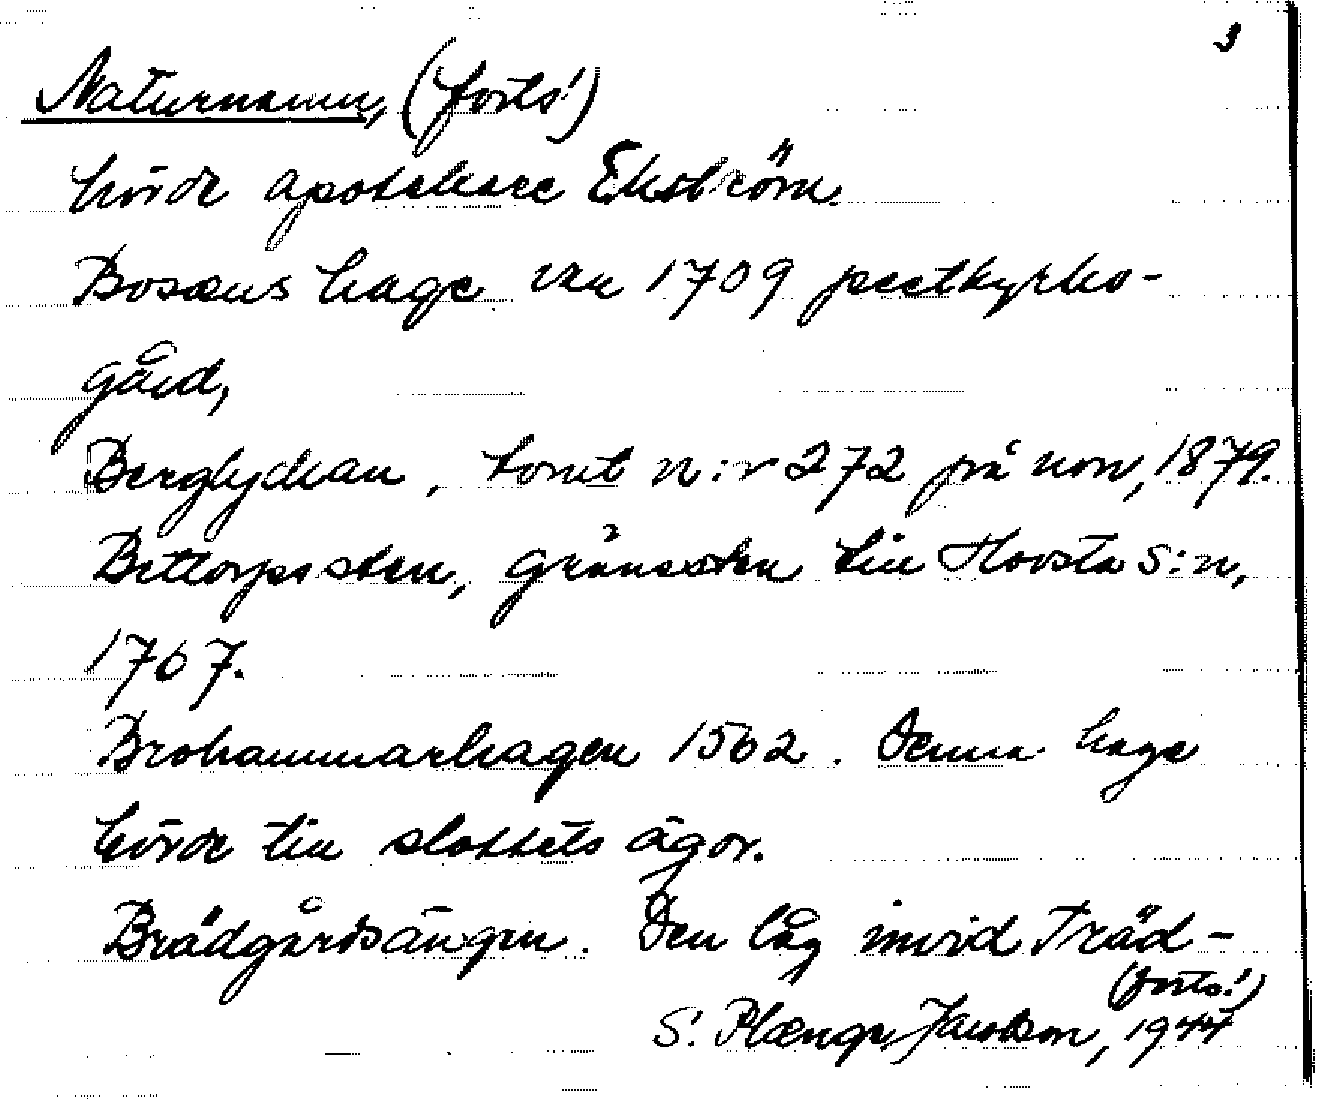 3
Naturnamn, (forts!)
hörde apotekare Ekström.
Bosæus hage var 1709 pestkyrko-
gård,
Berglyckan, tomt n:r 272 på norr, 1879.
Bettorpssten, gränssten till Hovsta s:n,
1767.
Brohammarhagen 1562. Denna hage
hörde till slottets ägor.
Brädgårdsängen. Den låg invid Träd-
(forts!)
S. Plænge Jacobson, 1944